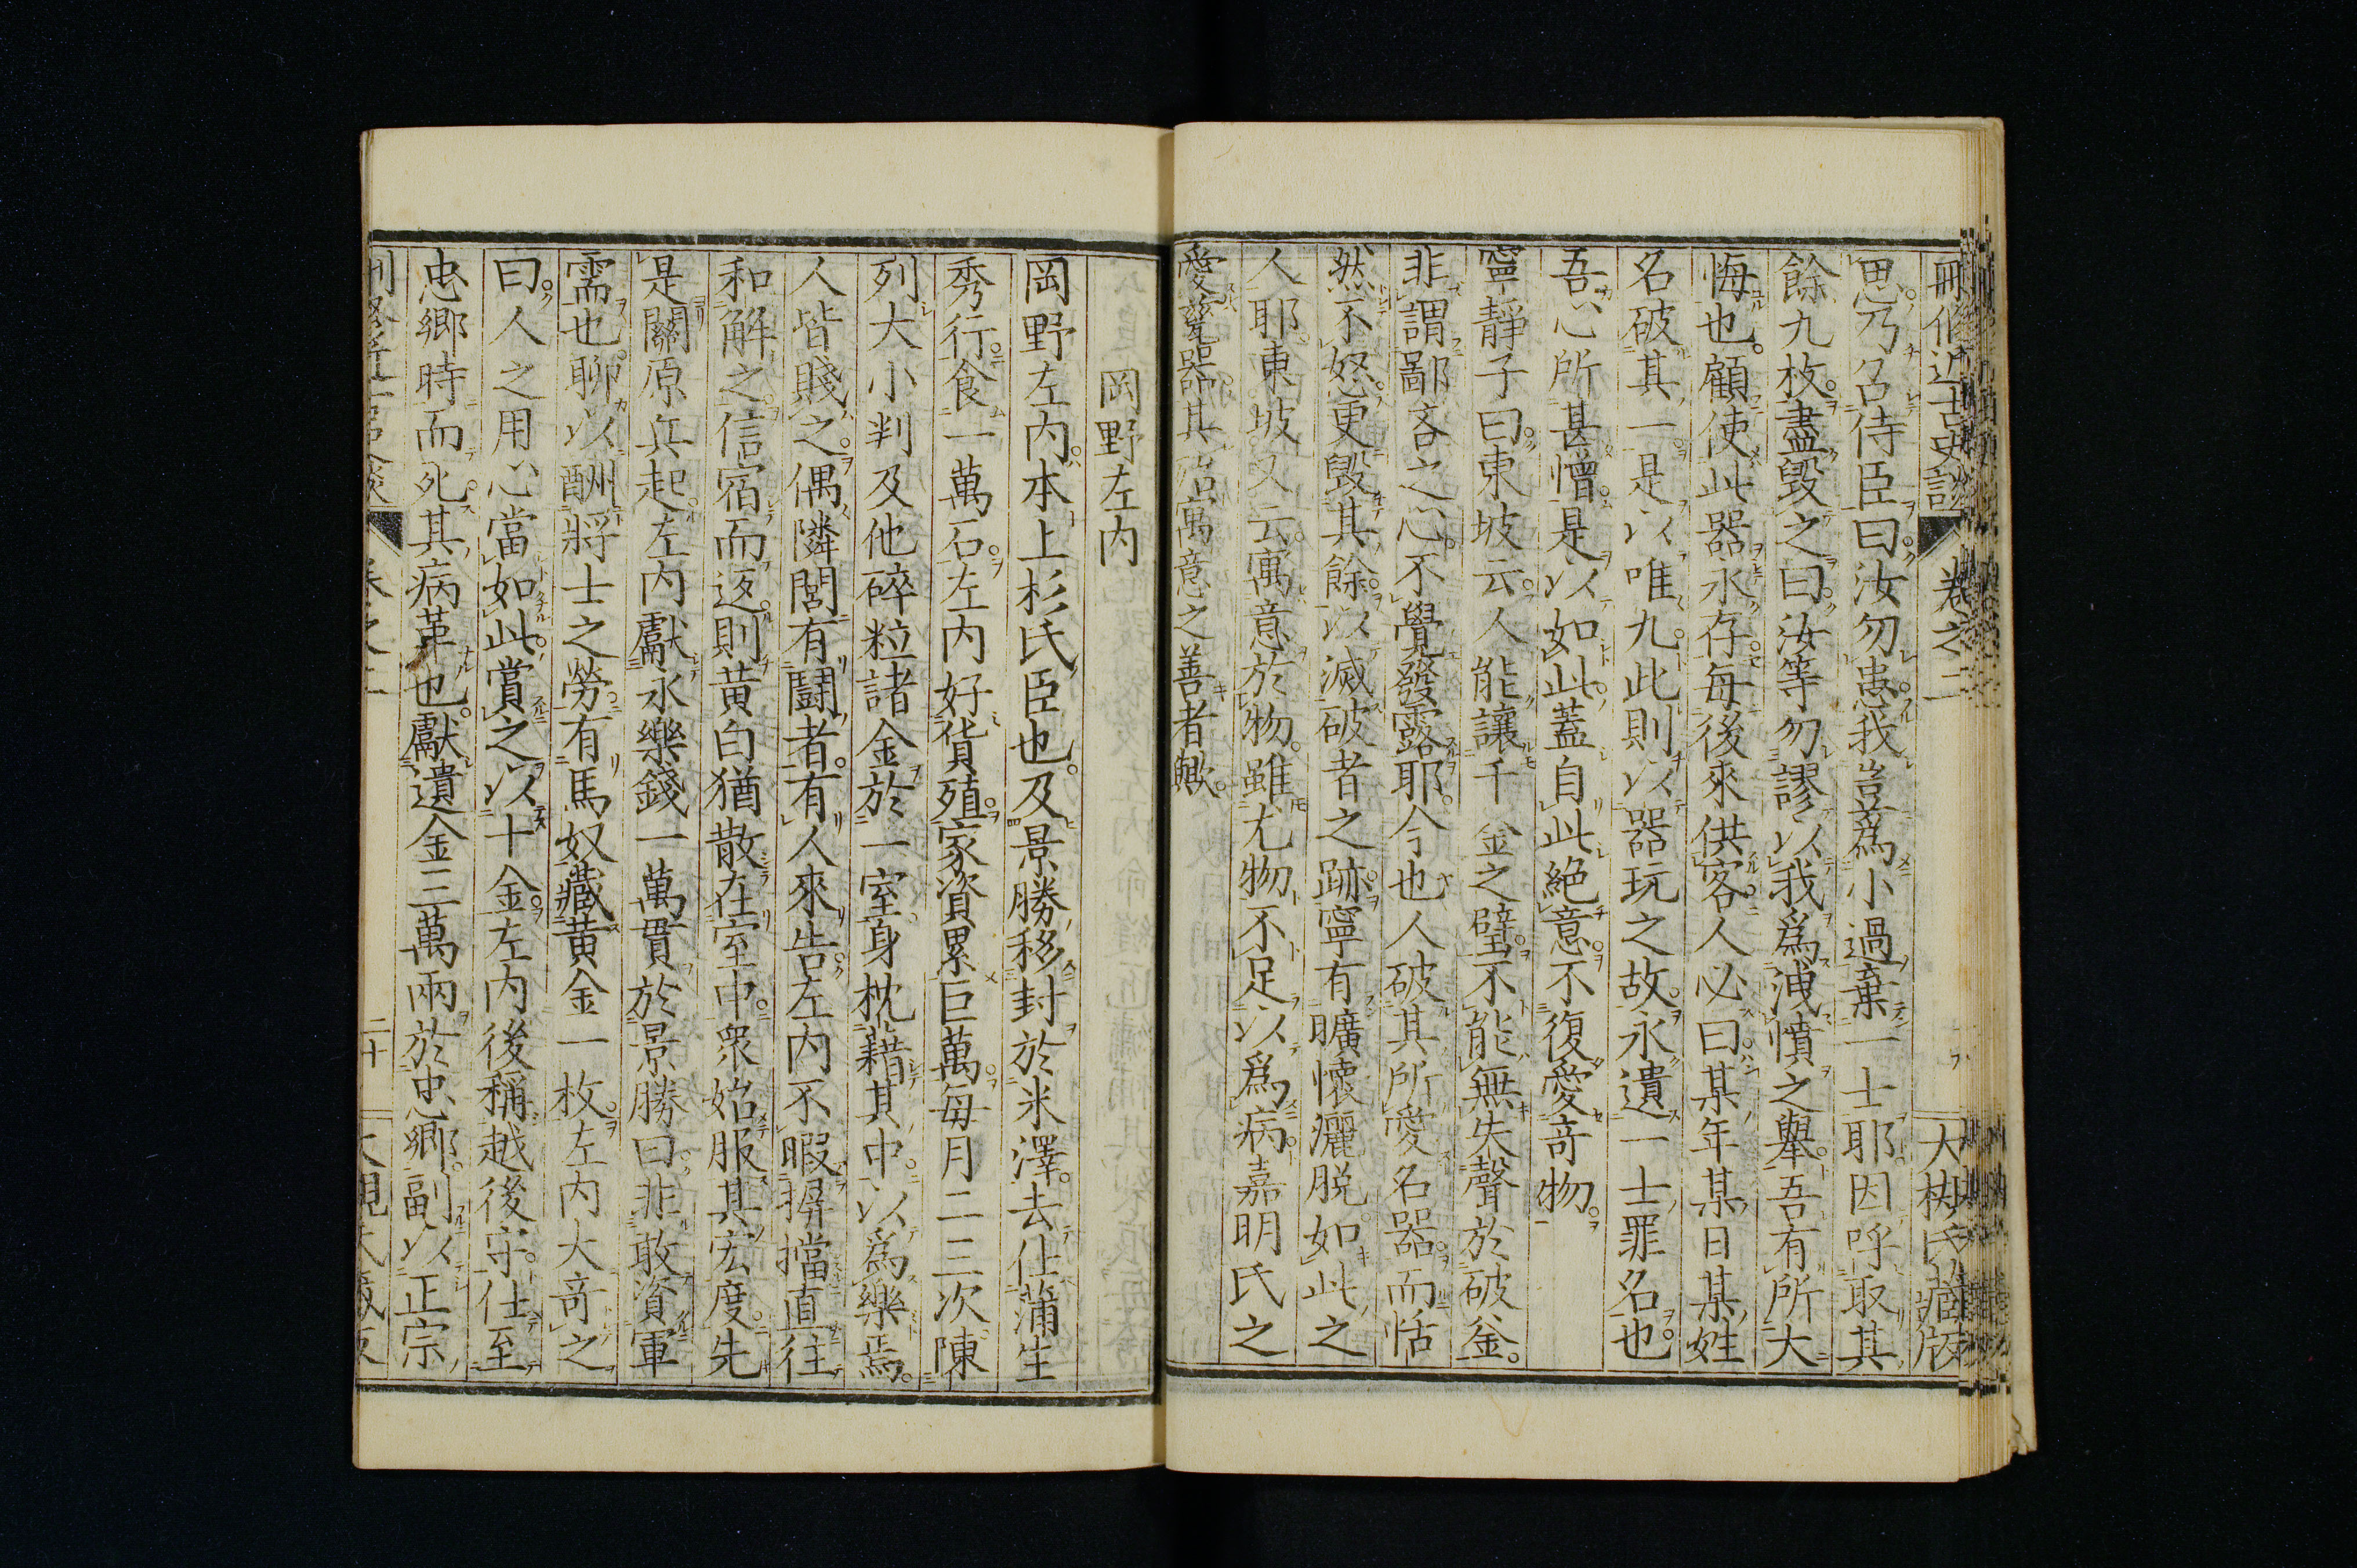 刪修近古史談 卷之二 大槻氏藏版
思乃召侍臣曰汝勿患我豈爲小過棄一士耶因呼取其
餘九枚盡毀之曰汝等勿謬以我爲洩憤之擧吾有所大
悔也顧使此器永存每後來供客人必曰某年某日某姓
名破其一是以唯九此則以器玩之故永遺一士罪名也
吾心所甚憎是以如此蓋自此絕意不復愛奇物
寧靜子曰東坡云人能讓千金之璧不能無失聲於破釜
非謂鄙吝之心不覺發露耶今也人破其所愛名器而恬
然不怒更毀其餘以滅破者之跡寧有曠懷灑脱如此之
人耶東坡又云寓意於物雖尤物不足以爲病嘉明氏之
愛瓷器其殆寓意之善者歟
岡野左內
岡野左內本上杉氏臣也及景勝移封於米澤去仕蒲生
秀行食一萬石左內好貨殖家資累巨萬每月二三次陳
列大小判及他碎粒諸金於一室身枕藉其中以爲樂焉
人皆賤之偶隣閭有鬪者有人來告左內不暇摒擋直往
和解之信宿而返則黄白猶散在室中衆始服其宏度先
是關原兵起左內獻永樂錢一萬貫於景勝曰非敢資軍
需也聊以酬將士之勞有馬奴藏黄金一枚左內大奇之
曰人之用心當如此賞之以十金左內後稱越後守仕至
忠鄉時而死其病革也獻遺金三萬兩於忠鄉副以正宗
二十